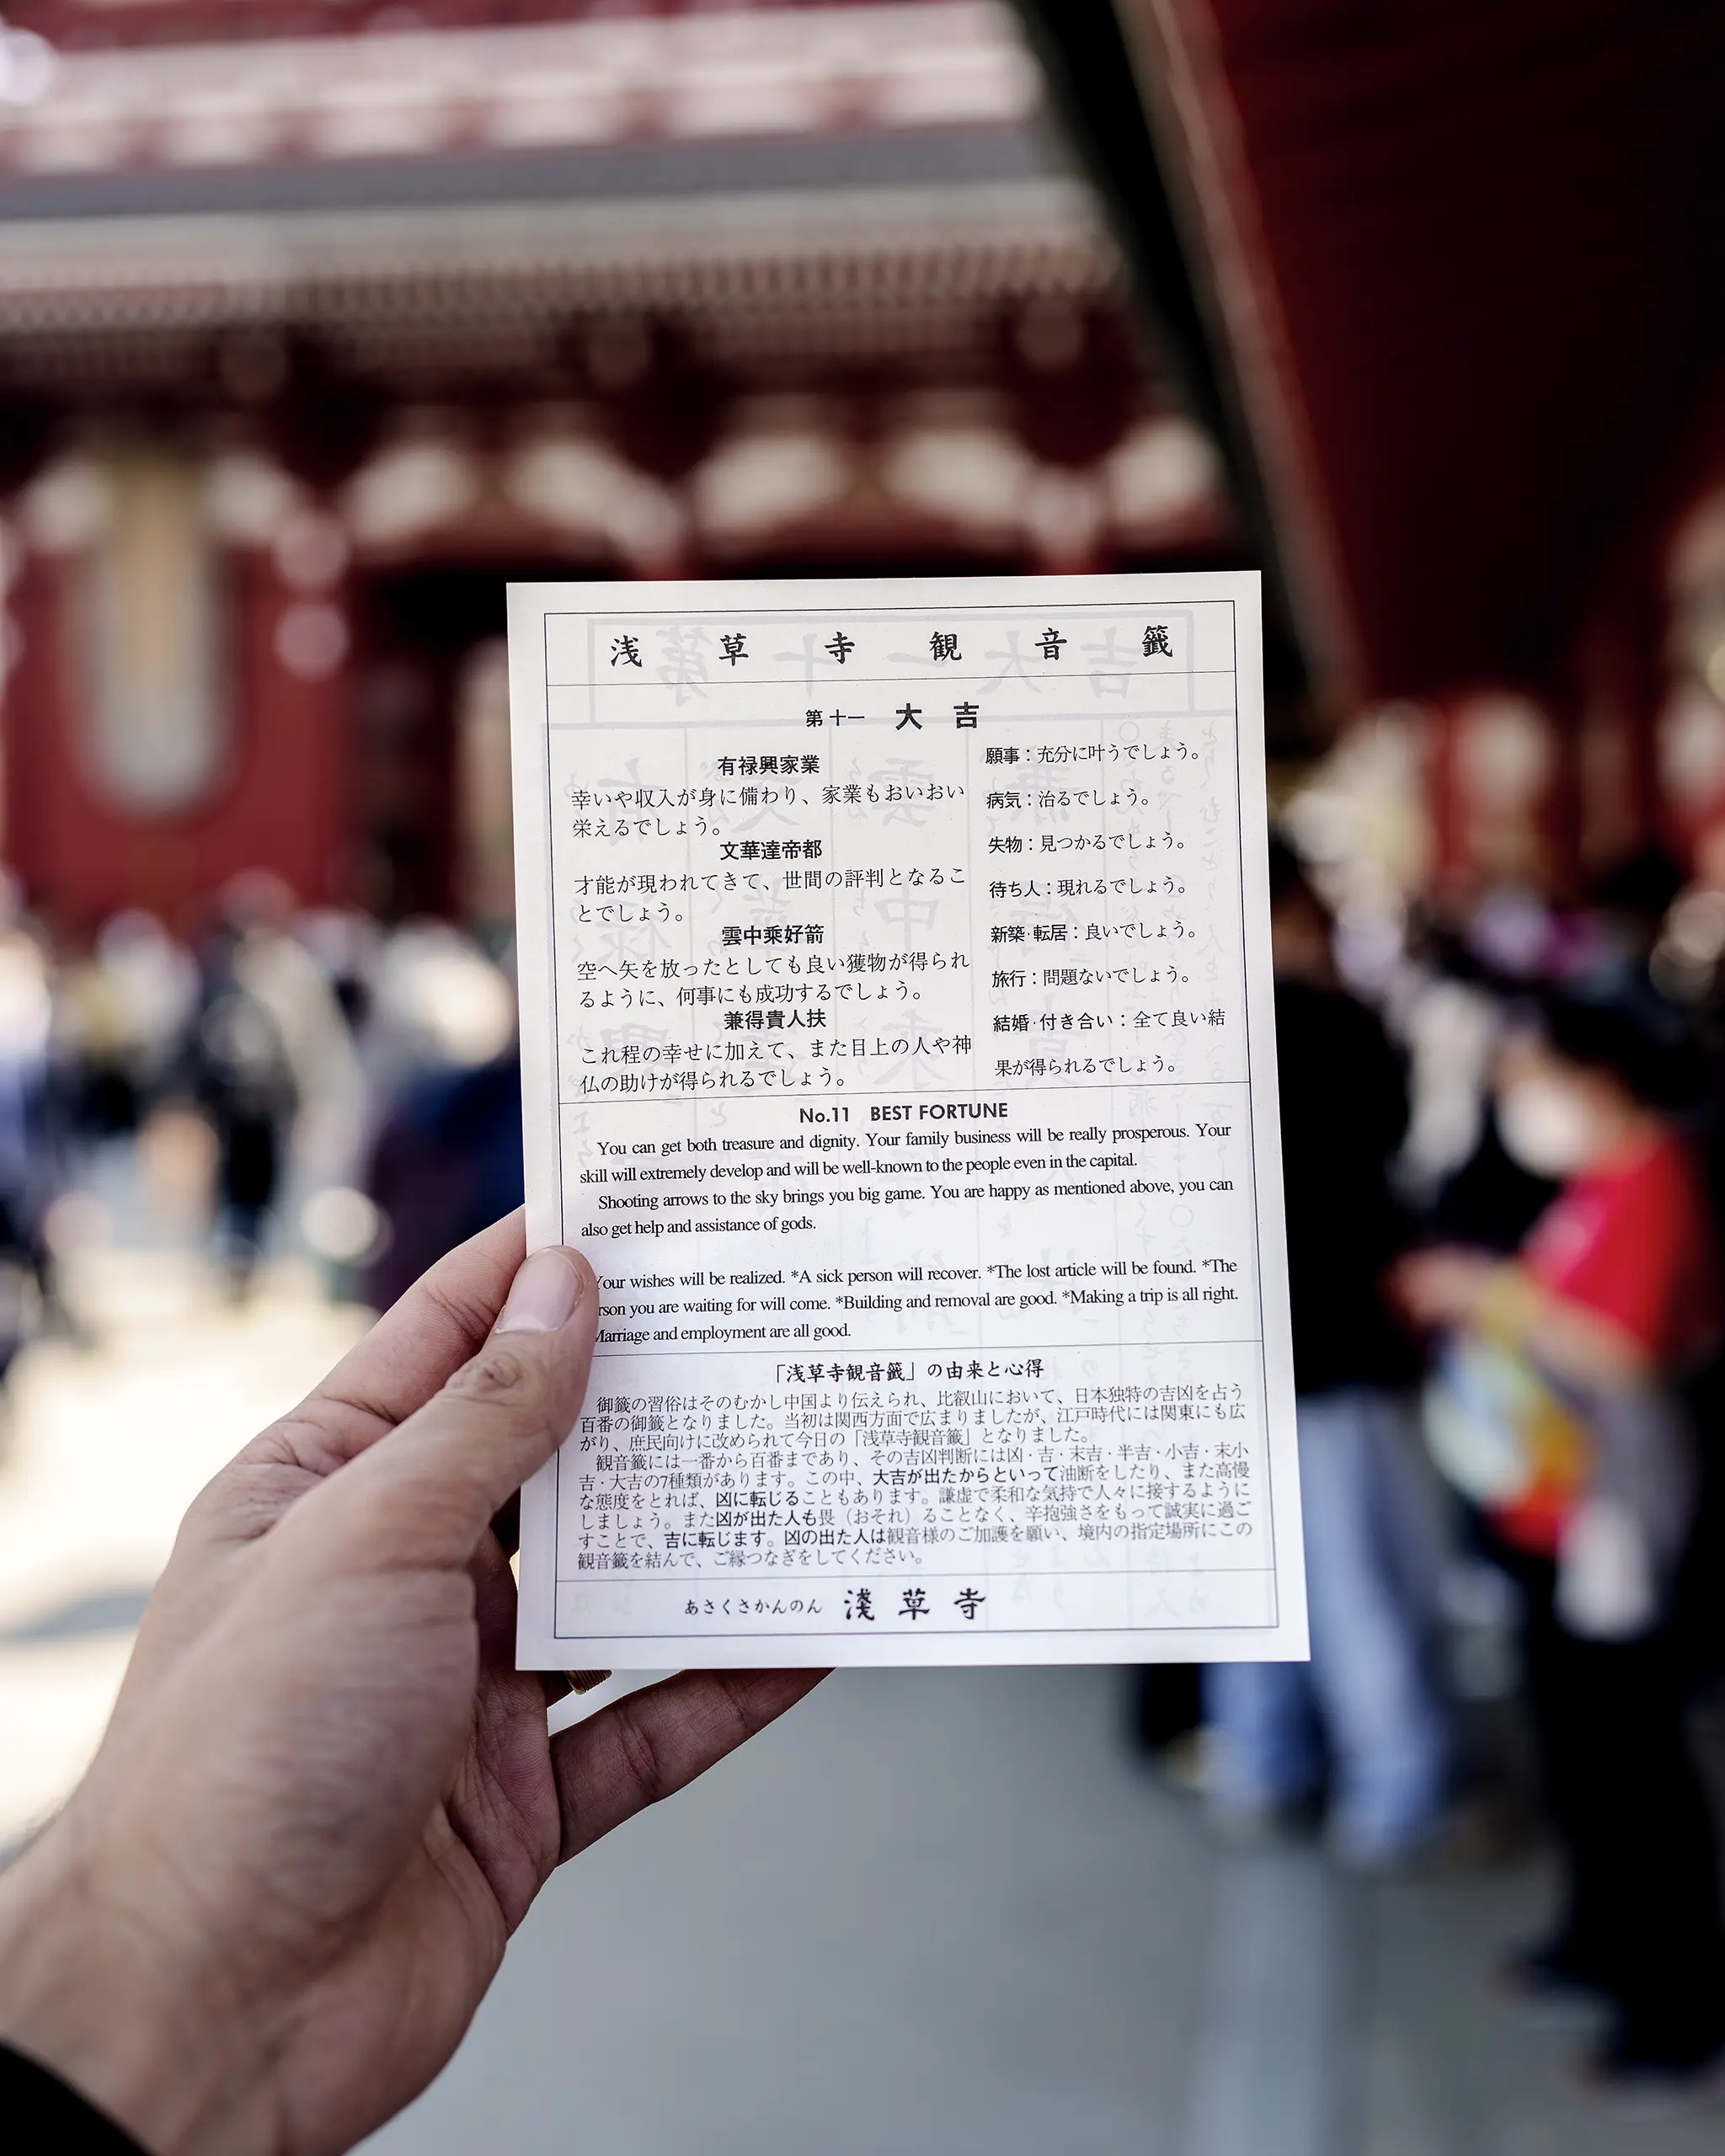 浅草寺観音籤
第十一 大吉
有禄興家業
幸いや収入が身に備わり、家業もおいおい
栄えるでしょう。
文華達帝都
才能が現われてきて、世間の評判となるこ
とでしょう。
雲中乗好箭
空へ矢を放ったとしても良い獲物が得られ
るように、何事にも成功するでしょう。
兼得貴人扶
これ程の幸せに加えて、また目上の人や神
仏の助けが得られるでしょう。
願事：充分に叶うでしょう。
病気：治るでしょう。
失物：見つかるでしょう。
待ち人：現れるでしょう。
新築·転居：良いでしょう。
旅行：問題ないでしょう。
結婚·付き合い：全て良い結
果が得られるでしょう。
No.11 BEST FORTUNE
You can get both treasure and dignity. Your family business will be really prosperous. Your
skill will extremely develop and will be well-known to the people even in the capital.
Shooting arrows to the sky brings you big game. You are happy as mentioned above, you can
also get help and assistance of gods.
Your wishes will be realized. *A sick person will recover. *The lost article will be found. *The
you are waiting for will come. *Building and removal are good. *Making a trip is all right.
Marriage and employment are all good.
「浅草寺観音籤」の由来と心得
御籤の習俗はそのむかし中国より伝えられ、比叡山において、日本独特の吉凶を占う
百番の御籤となりました。当初は関西方面で広まりましたが、江戸時代には関東にも広
がり、庶民向けに改められて今日の「浅草寺観音籤」となりました。
観音籤には一番から百番まであり、その吉凶判断には凶・吉・末吉・半吉・小吉・末小
吉・大吉の7種類があります。この中、大吉が出たからといって油断をしたり、また高慢
な態度をとれば、凶に転じることもあります。謙虚で柔和な気持で人々に接するように
しましょう。また凶が出た人も畏（おそれ）ることなく、辛抱強さをもって誠実に過ご
すことで、吉に転じます。凶の出た人は観音様のご加護を願い、境内の指定場所にこの
観音籤を結んで、ご縁つなぎをしてください。
あさくさかんのん 淺草寺